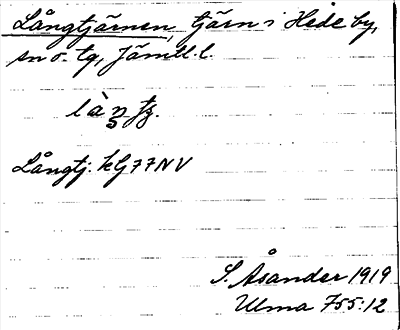 Långtjärnen, tjärn i Hede by,
sn o. tg, Jämtl. l.
Långtj. kG 77 NV
S. Åsander 1919
Ulma 755:12